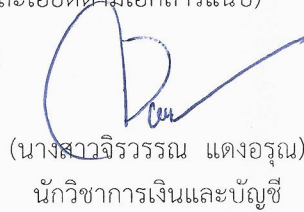 (นางสาวจิรวรรณ แดงอรุณ)
นักวิชาการเงินและบัญชี